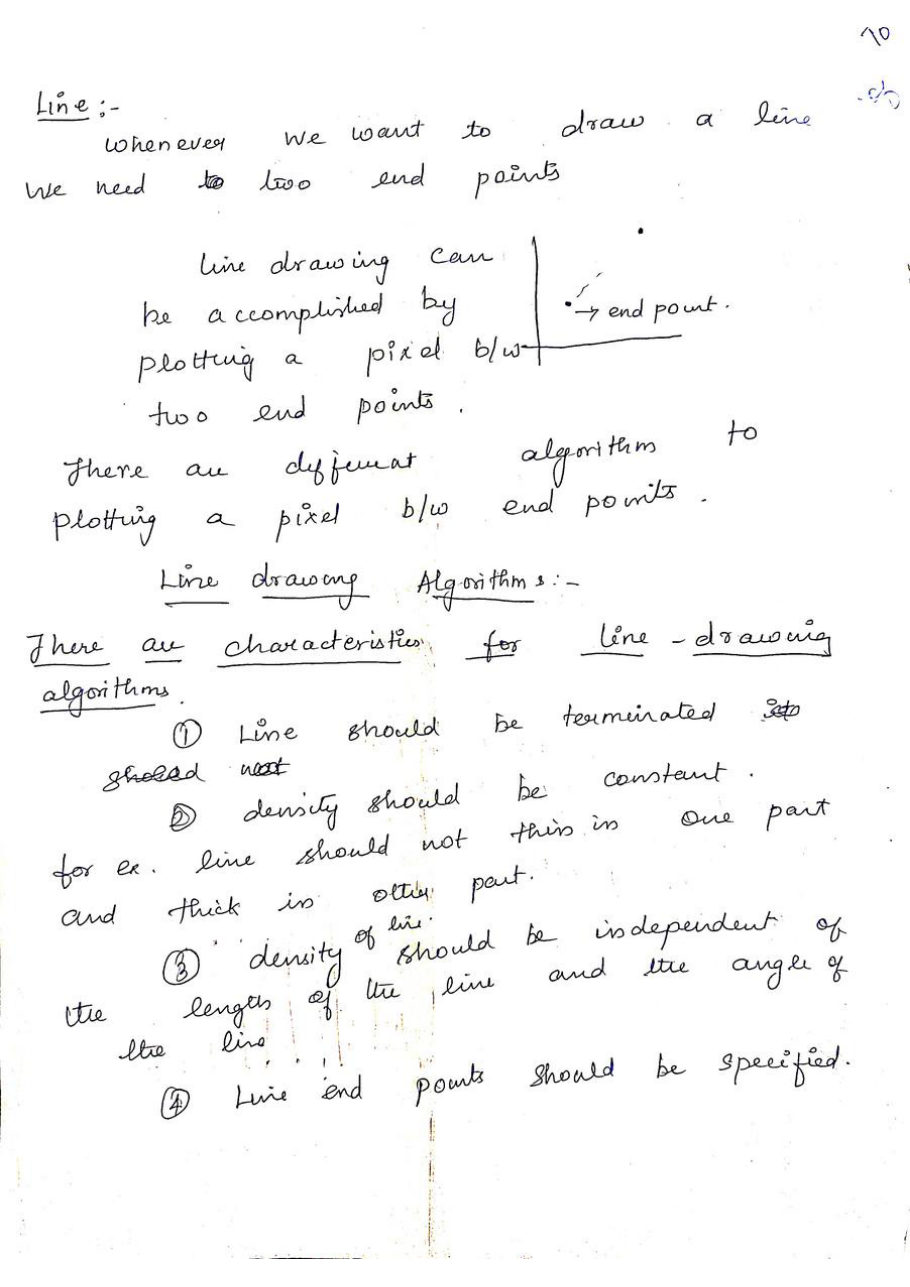 10
Line :-
Whenever we want to draw a line
We need to two end points
line drawing can
be accomplished by
plotting a pixel b/w
two end points.
→ end point.
There are different algorithm to
plotting a pixel b/w end points.
Line drawing Algorithms:-
There are characteristics for line - drawing
algorithms.
① Line should be terminated
② density should be constant.
for ex. line should not thin in one part
and thick in other part.
③ density of line should be independent of
the length of the line and the angle of
the line
④ Line end points should be specified.